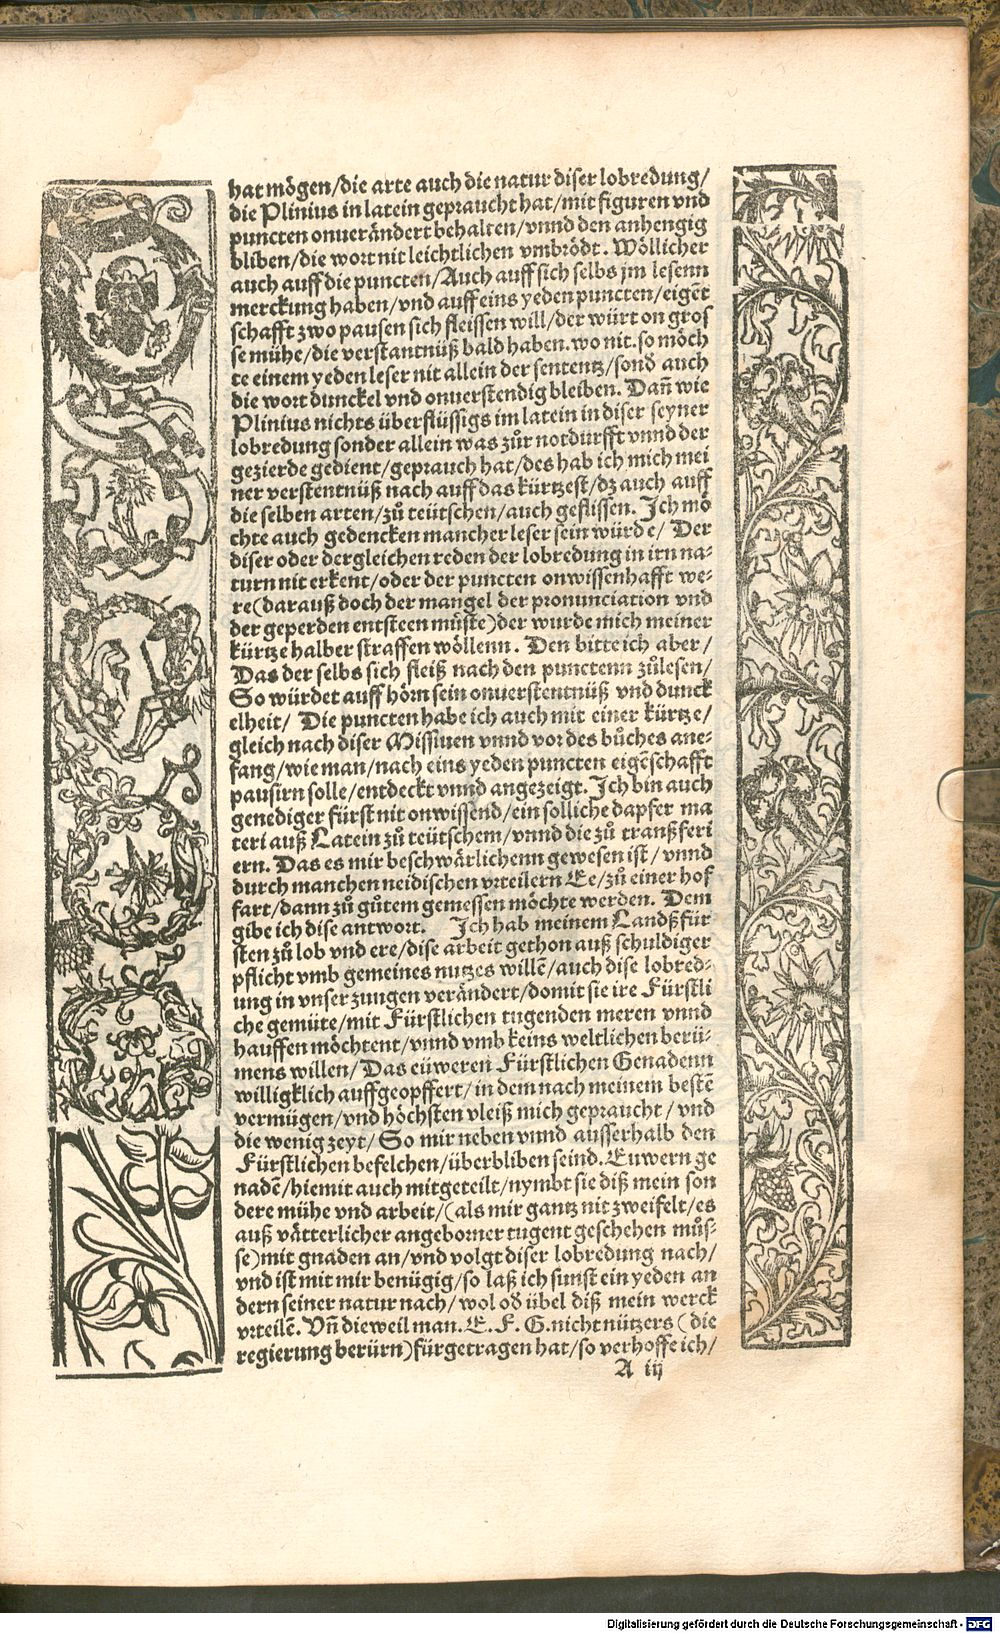 hat mögen/die arte auch die natur diser lobredung/
die Plinius in latein gepraucht hat/mit figuren vnd
puncten onuerändert behalten/vnnd den anhengig
bliben/die wort nit leichtlichen vmbrödt. Wöllicher
auch auff die puncten/Auch auff sich selbs jm lesenn
merckung haben/vnd auff eins yeden puncten/eigẽt
schafft zwo pausen sich fleissen will/der würt on gros
se mühe/die verstantnüß bald haben. wo nit. so möch
te einem yeden leser nit allein der sententz/sond auch
die wort dunckel vnd onuerstendig bleiben. Dañ wie
Plinius nichts überflüssigs im latein in diser seyner
lobredung sonder allein was zůr notdurfft vnnd der
gezierde gedient/geprauch hat/des hab ich mich mei
ner verstentnüß nach auff das kürtzest/dz auch auff
die selben arten/zů teütschen/auch geflissen. Ich mö
chte auch gedencken mancher leser sein würde/ Der
diser oder dergleichen reden der lobredung in irn na⸗
turn nit erkent/oder der puncten onwissenhafft we⸗
re(darauß doch der mangel der pronunciation vnd
der geperden entsteen můste)der wurde mich meiner
kürtze halber straffen wöllenn. Den bitte ich aber/
Das der selbs sich fleiß nach den punctenn zůlesen/
So würdet auff hörn sein onuerstentnüß vnd dunck
elheit/ Die puncten habe ich auch mit einer kürtze/
gleich nach diser Missiuen vnnd vor des bůches ane⸗
fang/wie man/nach eins yeden puncten eigẽschafft
pausirn solle/entdeckt vnnd angezeigt. Ich bin auch
genediger fürst nit onwissend/ein solliche dapfer ma
teri auß Latein zů teütschem/vnnd die zů tranßferi
ern. Das es mir beschwärlichenn gewesen ist/vnnd
durch manchen neidischen vrteilern Ee/zů einer hof
fart/dann zů gůtem gemessen möchte werden. Dem
gibe ich dise antwort. Ich hab meinem Landßfür
sten zů lob vnd ere/dise arbeit gethon auß schuldiger
pflicht vmb gemeines nutzes willẽ/auch dise lobred⸗
ung in vnser zungen verändert/domit sie ire Fürstli
che gemüte/mit Fürstlichen tugenden meren vnnd
hauffen möchtent/vnnd vmb keins weltlichen berü⸗
mens willen/Das eüweren Fürstlichen Genadenn
willigklich auffgeopffert/in dem nach meinem bestẽ
vermügen/vnd höchsten vleiß mich gepraucht/vnd
die wenig zeyt/So mir neben vnnd ausserhalb den
Fürstlichen befelchen/überbliben seind. Euwern ge
nadẽ/hiemit auch mitgeteilt/nymbt sie diß mein son
dere mühe vnd arbeit/(als mir gantz nit zweifelt/es
auß vätterlicher angeborner tugent geschehen můs⸗
se)mit gnaden an/vnd volgt diser lobredung nach/
vnd ist mit mir benügig/so laß ich sunst ein yeden an
dern seiner natur nach/wol oð übel diß mein werck
vrteilẽ. Vñ dieweil man. E. F. G. nicht nützers (die
regierung berürn)fürgetragen hat/so verhoffe ich/
A iij
Digitalisierung gefördert durch die Deutsche Forschungsgemeinschaft - DFG